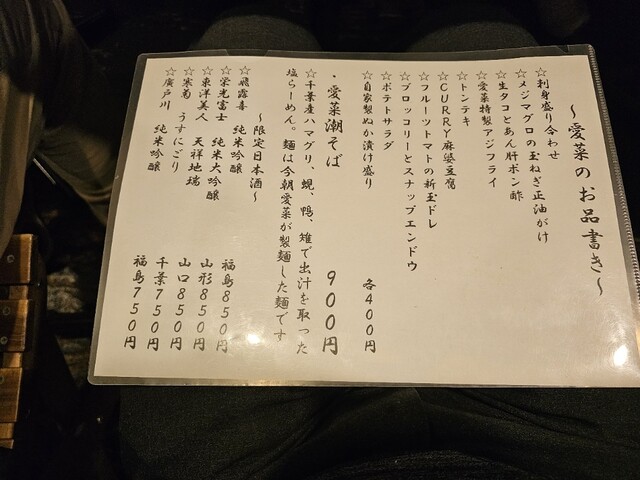 ～愛菜のお品書き～
☆刺身盛り合わせ
☆メジマグロの玉ねぎ正油がけ
☆生タコとあん肝ポン酢
☆愛菜特製アジフライ
☆トンテキ
☆CURRY麻婆豆腐
☆フルーツトマトの新玉ドレ
☆ブロッコリーとスナップエンドウ
☆ポテトサラダ
☆自家製ぬか漬け盛り 各400円
・愛菜潮そば 900円
☆千葉産ハマグリ、蜆、鴨、雉で出汁を取った
塩らーめん。麺は今朝愛菜が製麺した麺です
～限定日本酒～
☆飛露喜 純米吟醸 福島850円
☆栄光冨士 純米大吟醸 山形850円
☆東洋美人 天祥地瑞 山口850円
☆寒菊 うすにごり 千葉750円
☆廣戸川 純米吟醸 福島750円